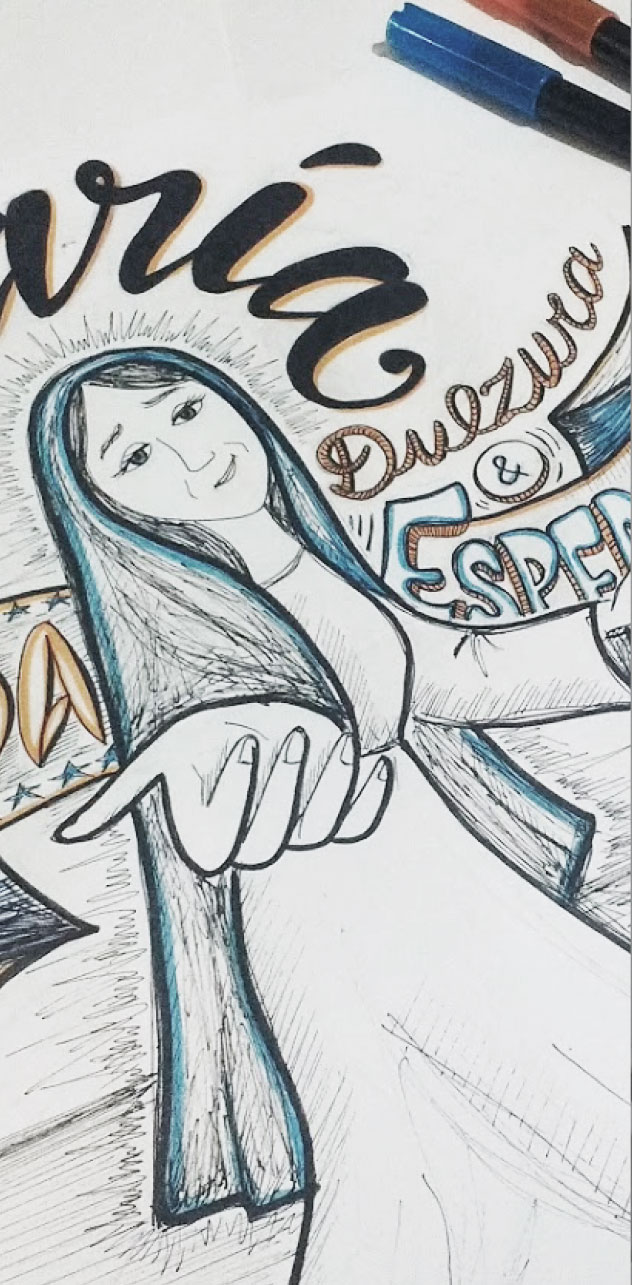 aría
Dulzura
&
ESPER
DA